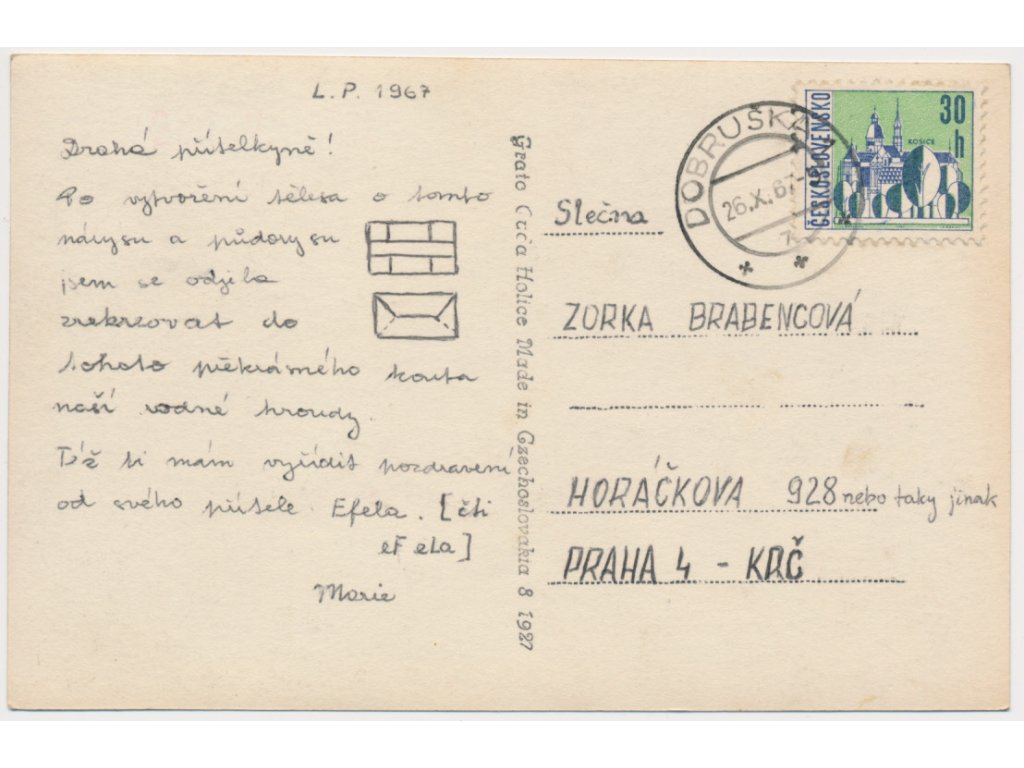 L. P. 1967
Drahá přítelkyně!
Po vytvoření tělesa o tomto
nárysu a půdorysu
jsem se odjela
zrekrzovat do
tohoto překrásného kouta
naší rodné hroudy.
Též ti mám vyřídit pozdravení
od svého přítele Efela. [čti
eFeLa]
Marie
Grafo Čuča Holice Made in Czechoslovakia 8 1927
DOBRUŠKA
26.X.67
1
ČESKOSLOVENSKO
30
h
KOŠICE
Slečna
ZORKA BRABENCOVÁ
HORÁČKOVA 928 nebo taky jinak
PRAHA 4 - KRČ